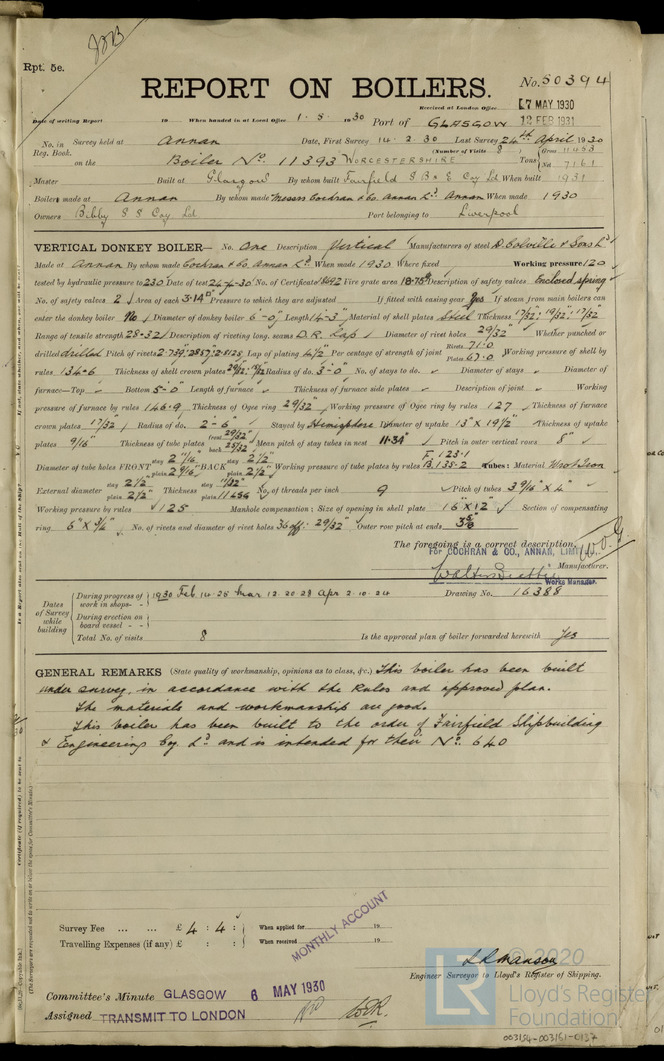 Rpt. 5e.
REPORT ON BOILERS.
No. 50394
Received at London Office 7 MAY 1930
Date of writing Report 19 When handed in at Local Office 1. 5. 1930 Port of GLASGOW FEB 1931
No. in Reg. Book. Survey held at Annan Date, First Survey 14. 2. 30 Last Survey 24th April 1930
on the Boiler No. 11393 WORCESTERSHIRE (Number of Visits 8) Tons Gross 11453 Net 7161
Master Built at Glasgow By whom built Fairfield S B & E Coy Ld When built 1931
Boilers made at Annan By whom made Messrs Cochran & Co. Annan Ld. Annan When made 1930
Owners Bibby S S Coy Ld Port belonging to Liverpool
VERTICAL DONKEY BOILER— No. One Description Vertical Manufacturers of steel D. Colville & Sons Ld
Made at Annan By whom made Cochran & Co. Annan Ld. When made 1930 Where fixed Working pressure 120
tested by hydraulic pressure to 230 Date of test 24.4.30 No. of Certificate Fire grate area Description of safety valves Enclosed spring
No. of safety valves 2 Area of each 3.14" Pressure to which they are adjusted If fitted with easing gear Yes If steam from main boilers can
enter the donkey boiler No Diameter of donkey boiler 6'-0" Length 14'-3" Material of shell plates Steel Thickness 17/32" 19/32" 17/32"
Range of tensile strength 28-32 Description of riveting long. seams D.R. Lap Diameter of rivet holes 29/32" Whether punched or
drilled drilled Pitch of rivets Lap of plating 4 1/2 Per centage of strength of joint Rivets 71.0 Plates 67.0 Working pressure of shell by
rules 134.6 Thickness of shell crown plates Radius of do. 3'-0" No. of stays to do. Diameter of stays Diameter of
furnace—Top Bottom 5'-0" Length of furnace Thickness of furnace side plates Description of joint Working
pressure of furnace by rules 146.9 Thickness of Ogee ring 29/32" Working pressure of Ogee ring by rules 127 Thickness of furnace
crown plates 17/32" Radius of do. 2'-6" Stayed by Hemisphere Diameter of uptake 13" X 19 1/2" Thickness of uptake
plates 9/16" Thickness of tube plates front 29/32" back 25/32" Mean pitch of stay tubes in nest 11.34" Pitch in outer vertical rows 8"
Diameter of tube holes FRONT stay 2 11/16" plain 2 9/16" BACK stay 2 1/2" plain 2 1/2" Working pressure of tube plates by rules F. 123.1 B. 135.2 Tubes: Material Wrot Iron
External diameter stay 2 1/2" plain 2 1/2" Thickness stay 11/32" plain No. of threads per inch 9 Pitch of tubes 3 9/16" X 4"
Working pressure by rules 125 Manhole compensation: Size of opening in shell plate 16" X 12" Section of compensating
ring 6" X 3/4" No. of rivets and diameter of rivet holes 36 off: 29/32" Outer row pitch at ends 3 5/8"
The foregoing is a correct description,
FOR COCHRAN & CO., ANNAN, LIMITED.
Manufacturer.
Works Manager.
Dates of Survey while building
During progress of work in shops - - 1930 Feb 14. 25 Mar 12. 20. 29 Apr 2. 10. 24 Drawing No. 16388
During erection on board vessel - - -
Total No. of visits 8 Is the approved plan of boiler forwarded herewith Yes
GENERAL REMARKS (State quality of workmanship, opinions as to class, &c.) This boiler has been built
under survey, in accordance with the Rules and approved plan.
The materials and workmanship are good.
This boiler has been built to the order of Fairfield Shipbuilding
& Engineering Coy Ld and is intended for their No. 640
Survey Fee ... ... £ 4 : 4 : When applied for 19
Travelling Expenses (if any) £ : : When received 19
MONTHLY ACCOUNT
Engineer Surveyor to Lloyd's Register of Shipping.
Committee's Minute GLASGOW 6 MAY 1930
Assigned TRANSMIT TO LONDON
© 2020
LR
Lloyd's Register
Foundation
003154-003161-0137